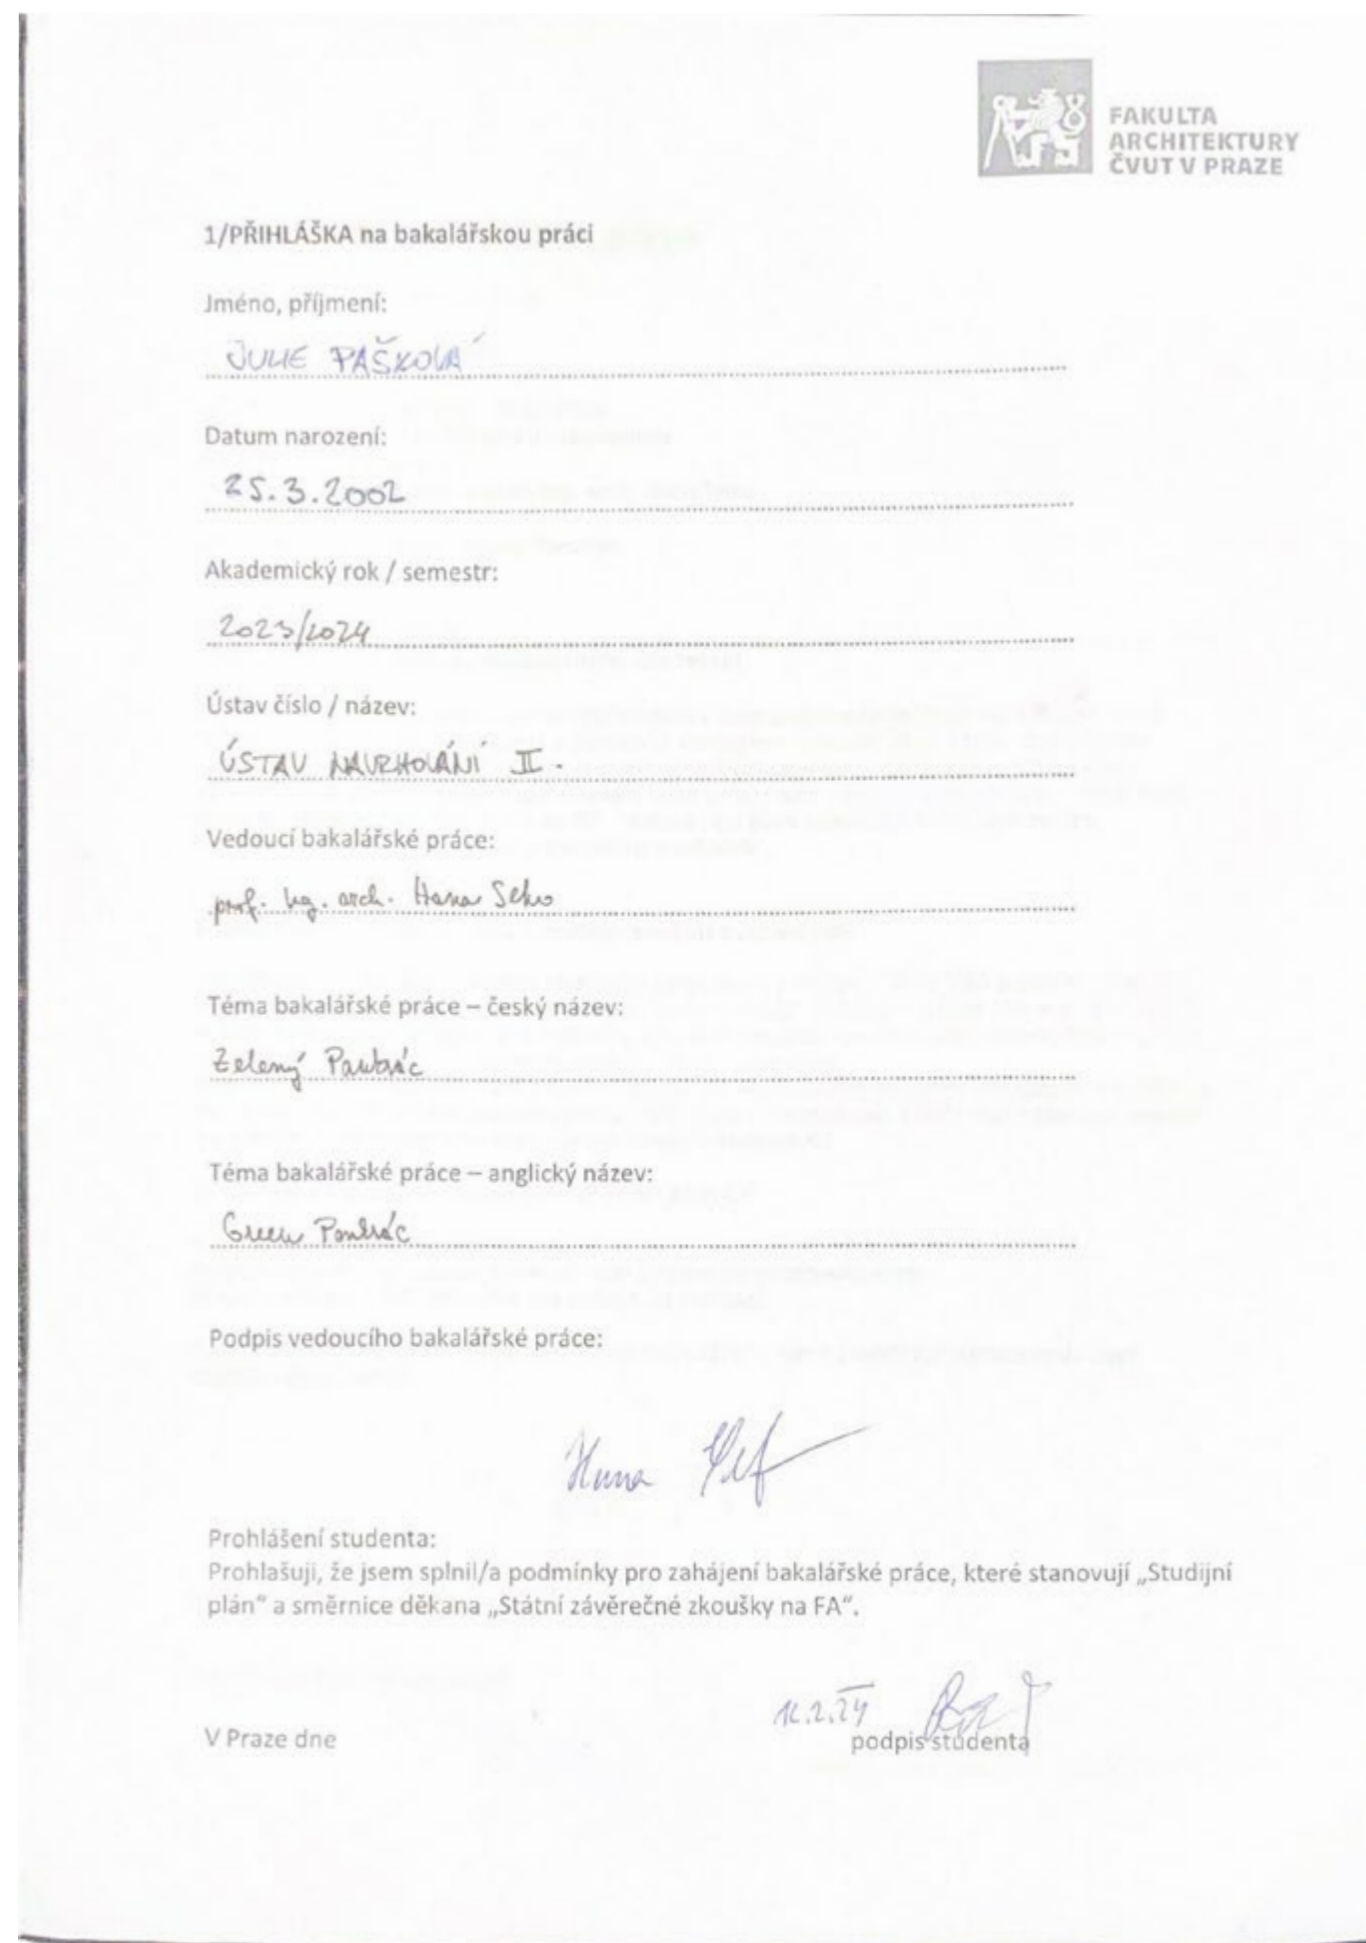 FAKULTA
ARCHITEKTURY
ČVUT V PRAZE
1/PŘIHLÁŠKA na bakalářskou práci
Jméno, příjmení:
JULIE PAŠKOVÁ
Datum narození:
25.3.2002
Akademický rok / semestr:
2023/2024
Ústav číslo / název:
ÚSTAV NAVRHOVÁNÍ II.
Vedoucí bakalářské práce:
prof. Ing. arch. Hana Seho
Téma bakalářské práce – český název:
Zelený Pankrác
Téma bakalářské práce – anglický název:
Green Pankrác
Podpis vedoucího bakalářské práce:
Hana
Prohlášení studenta:
Prohlašuji, že jsem splnil/a podmínky pro zahájení bakalářské práce, které stanovují „Studijní
plán“ a směrnice děkana „Státní závěrečné zkoušky na FA“.
V Praze dne
podpis studenta